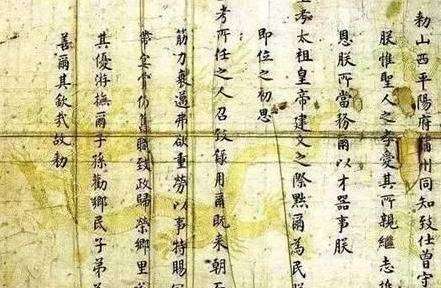 勑山西平陽府蒲州同知致仕曾守
朕惟聖人之孝愛其所親繼志
恩朕所當務爾以才器事朕
考太祖皇帝建文之際黜爾為民
即位之初思
考所任之人召致錄用爾既来朝
筋力衰邁弗欲重勞以事特賜
帶仍舊職致政歸榮鄉里
其優游撫爾子孫勸鄉民子弟
善爾其欽哉故勑